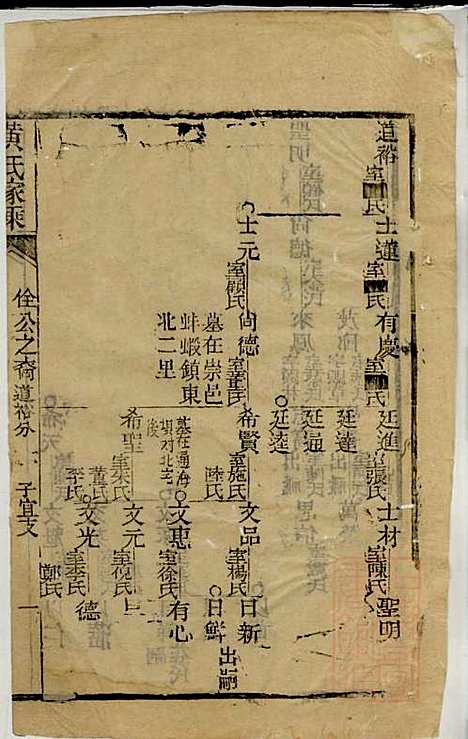 道裕 室■氏 士達 室■氏 有慶 室■氏 廷進 室張氏 士材 室陳氏 聖明
廷達
廷逼
廷逵
士元 室顧氏 尙德 室董氏 希賢 室施氏 陸氏 文品 室楊氏 日新
日鮮 出嗣
墓在崇邑
蚌蝦鎮東
北二里
墓在通海
壩对北宅
後
文惠 室徐氏 有心
希聖 室朱氏 董氏 李氏 文元 室倪氏
文光 室李氏 鄭氏 德
黃氏家乘
佺公之裔 道裕分 子宜支 一